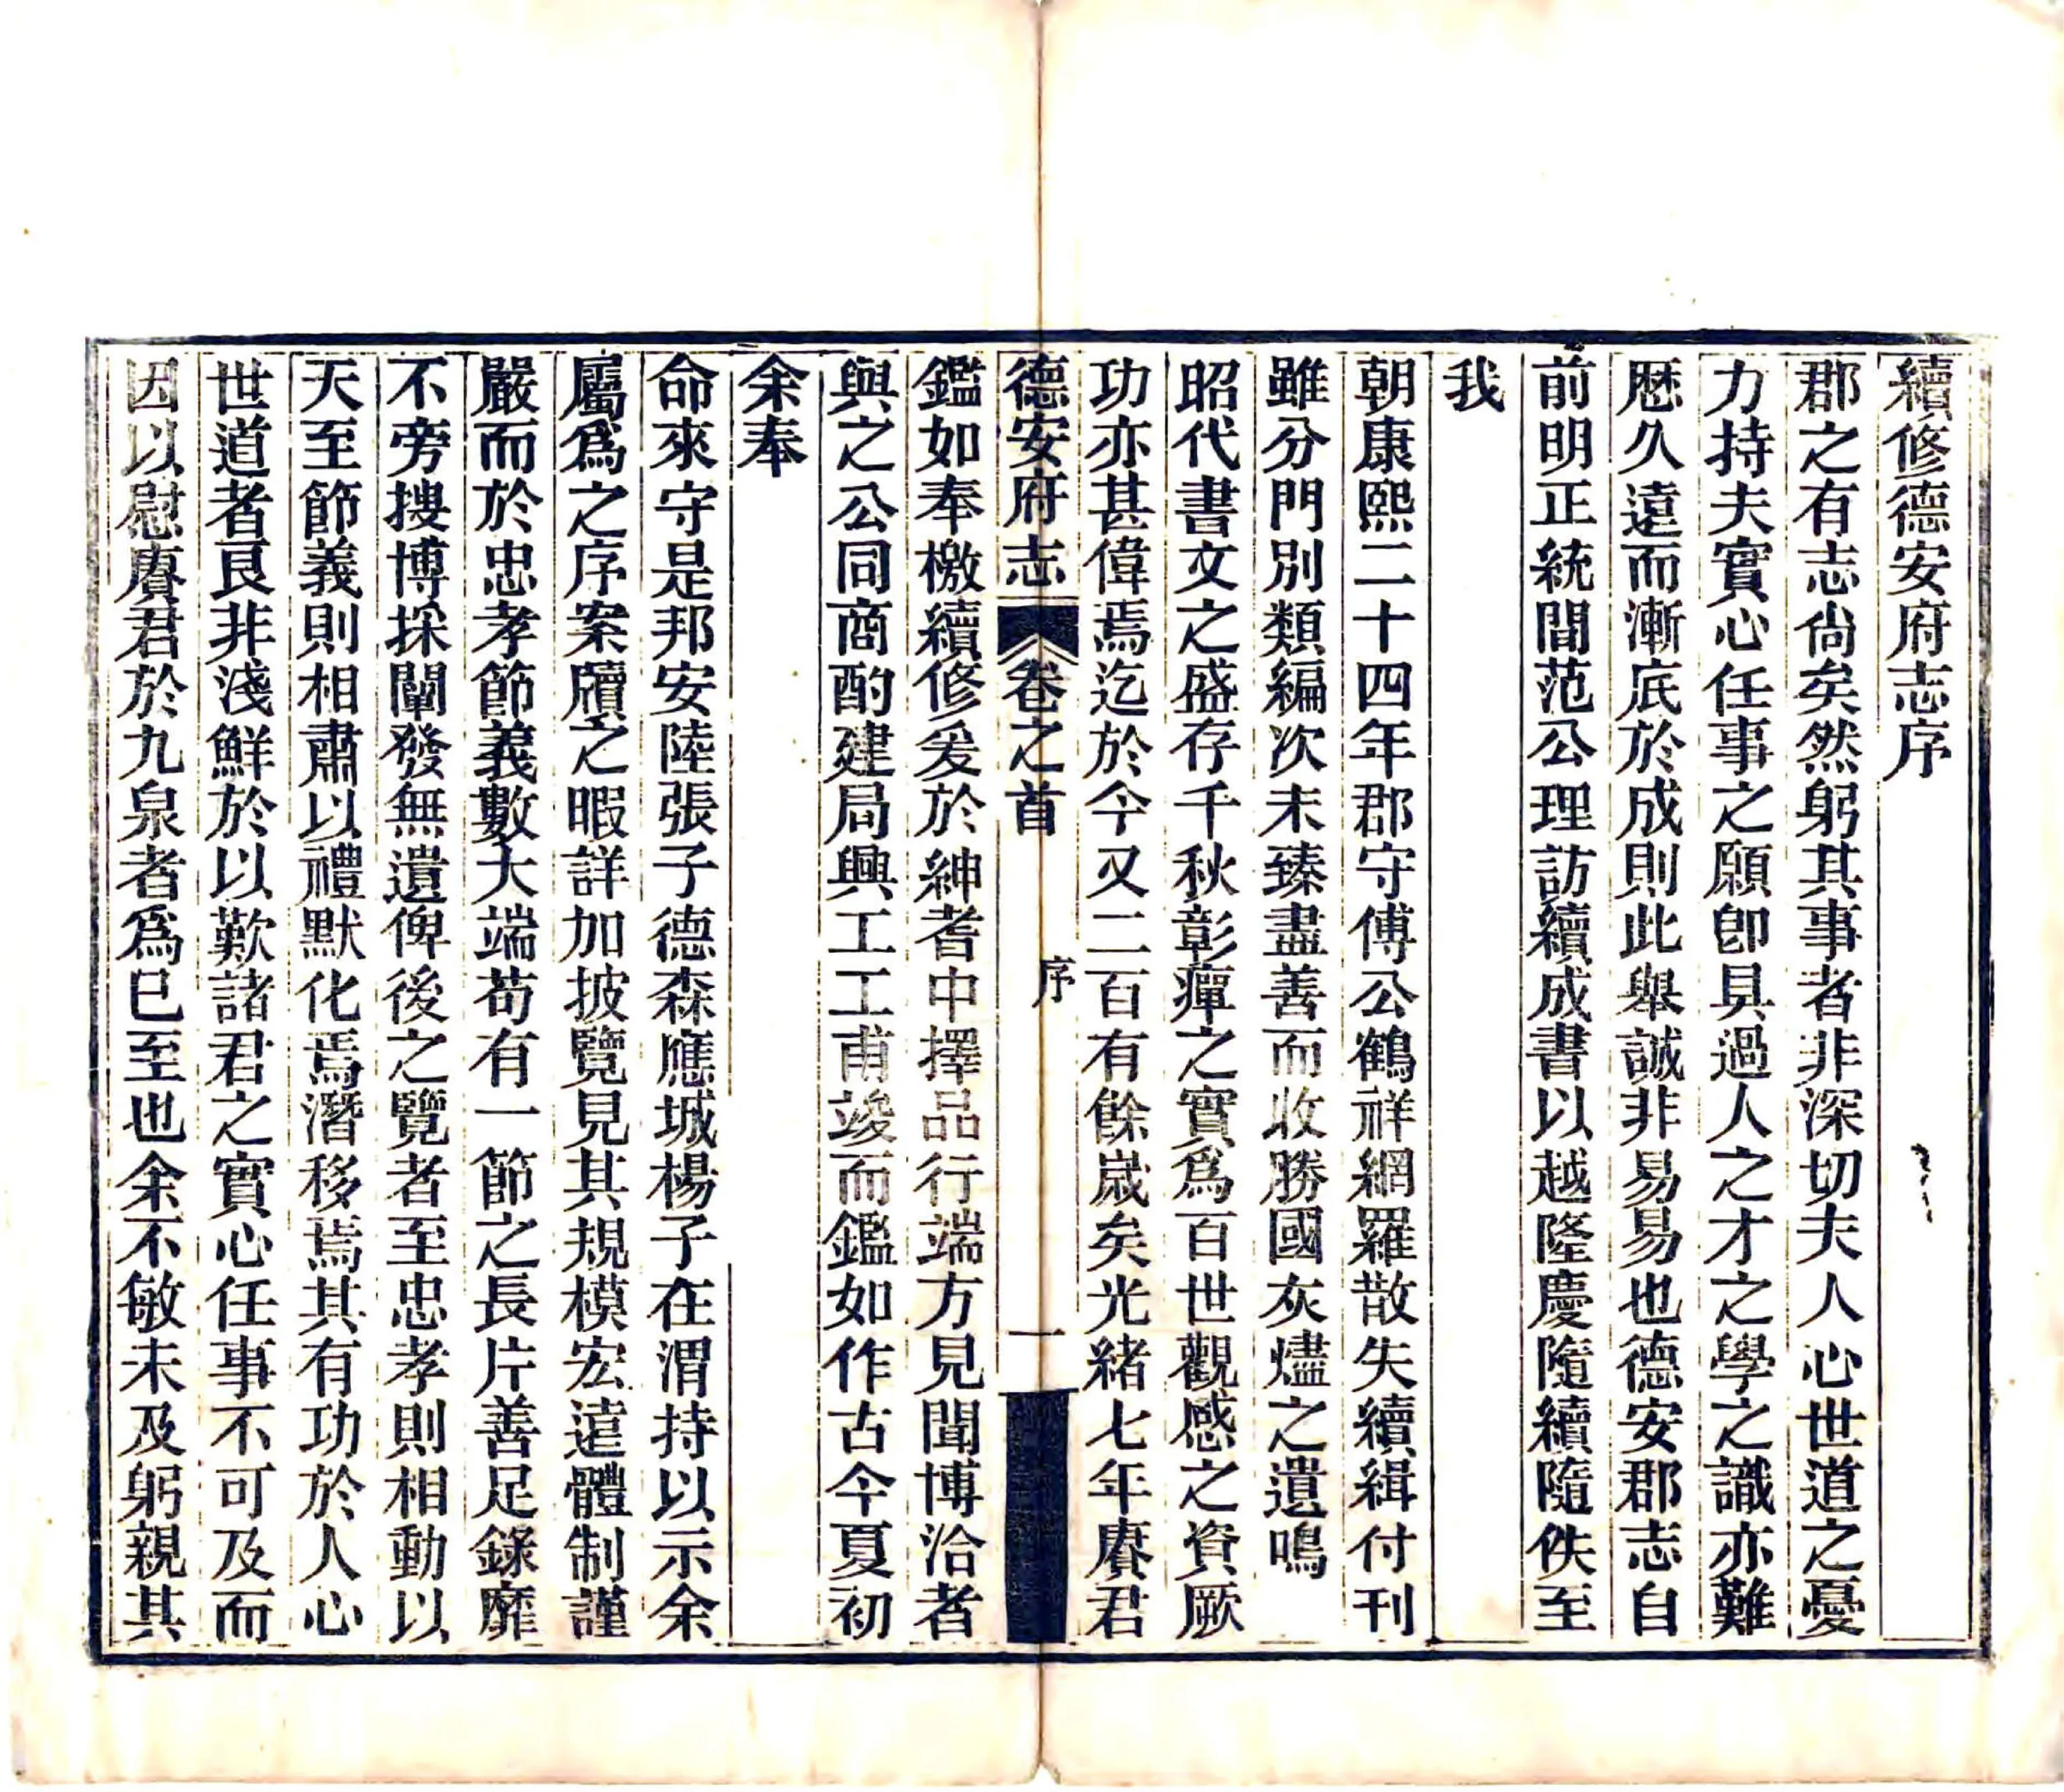 續修德安府志序
郡之有志尙矣然躬其事者非深切夫人心世道之憂
力持夫實心任事之願卽具過人之才之學之識亦難
歷久遠而漸底於成則此舉誠非易易也德安郡志自
前明正統間范公理訪續成書以越隆慶隨續隨佚至
我
朝康熙二十四年郡守傅公鶴祥網羅散失續緝付刊
雖分門別類編次未臻盡善而收勝國灰燼之遺鳴
昭代書文之盛存千秋彰癉之實爲百世觀感之資厥
功亦甚偉焉迄於今又二百有餘歲矣光緒七年賡君
德安府志 卷之首 序 一
鑑如奉檄續修爰於紳耆中擇品行端方見聞博洽者
與之公同商酌建局興工工甫竣而鑑如作古今夏初
余奉
命來守是邦安陸張子德森應城楊子在渭持以示余
屬爲之序案牘之暇詳加披覽見其規模宏遠體制謹
嚴而於忠孝節義數大端苟有一節之長片善足錄靡
不旁搜博採闡發無遺俾後之覽者至忠孝則相動以
天至節義則相肅以禮默化焉潛移焉其有功於人心
世道者良非淺鮮於以歎諸君之實心任事不可及而
因以慰賡君於九泉者爲已至也余不敏未及躬親其